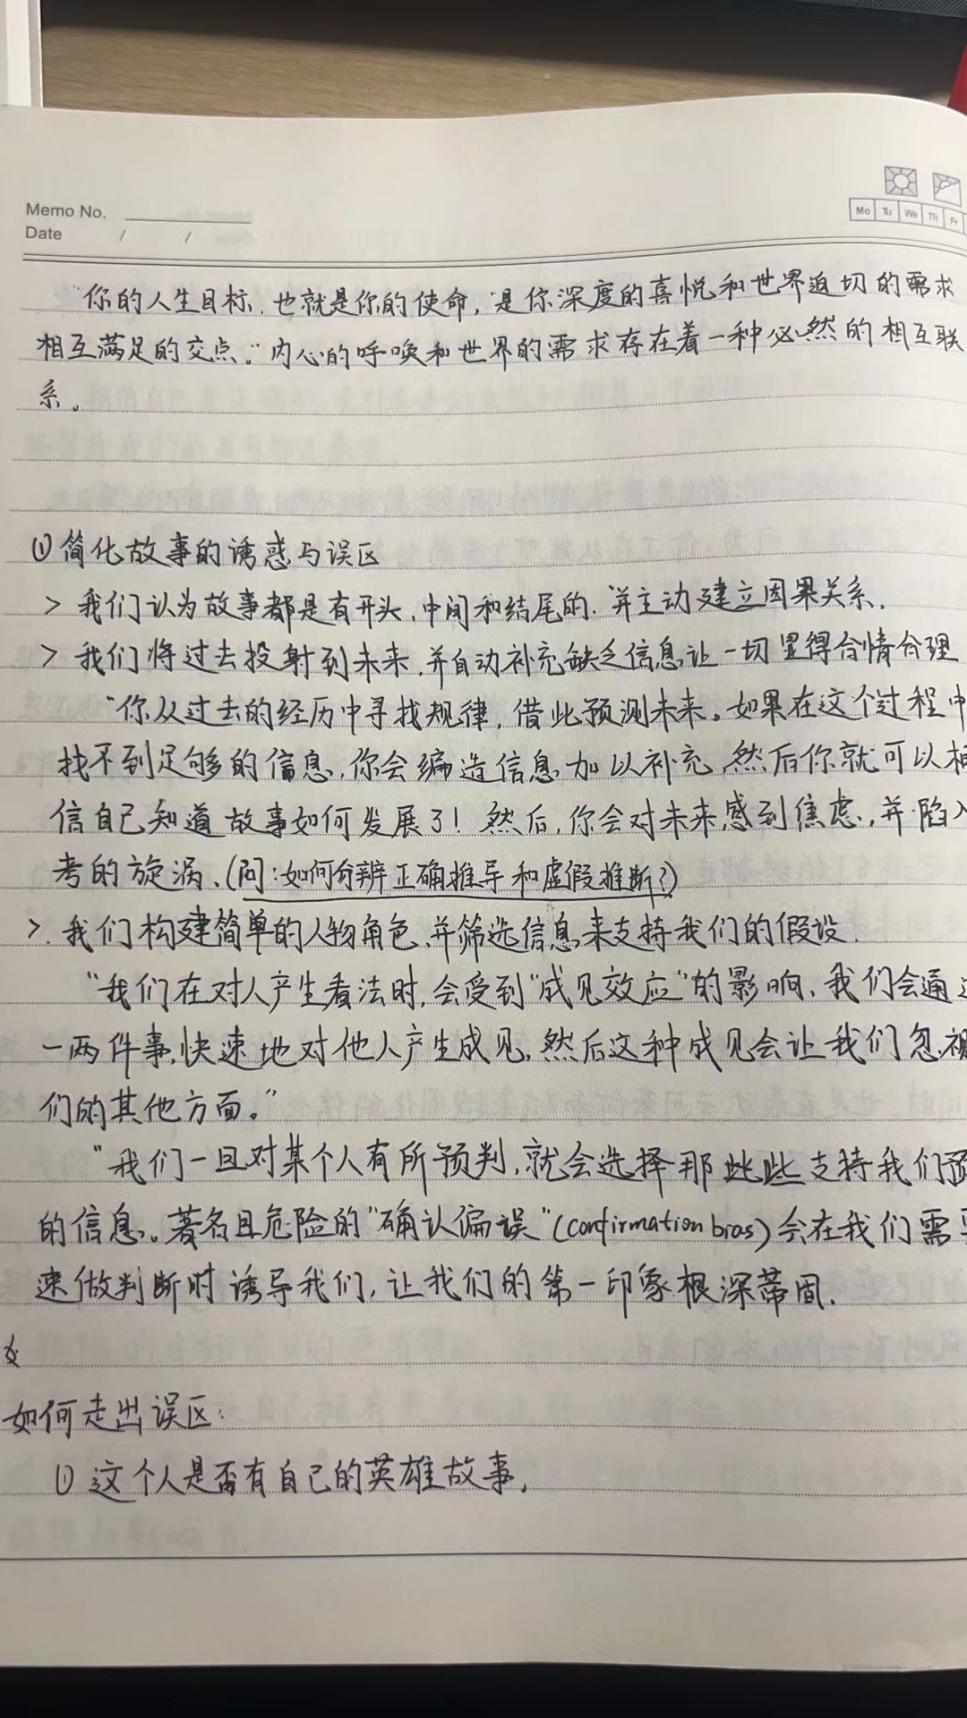 Memo No.
Date / /
Mo Tu We Th Fr
“你的人生目标,也就是你的使命,是你深度的喜悦和世界迫切的需求
相互满足的交点。”内心的呼唤和世界的需求存在着一种必然的相互联
系。
①简化故事的诱惑与误区
> 我们认为故事都是有开头、中间和结尾的,并主动建立因果关系.
> 我们将过去投射到未来,并自动补充缺乏信息让一切显得合情合理
“你从过去的经历中寻找规律,借此预测未来。如果在这个过程中
找不到足够的信息,你会编造信息加以补充,然后你就可以相
信自己知道故事如何发展了!然后,你会对未来感到焦虑,并陷入
考的旋涡、(问:如何分辨正确推导和虚假推断?)
>. 我们构建简单的人物角色,并筛选信息来支持我们的假设.
“我们在对人产生看法时,会受到“成见效应”的影响、我们会通过
一两件事,快速地对他人产生成见,然后这种成见会让我们忽视
们的其他方面。”
“我们一旦对某个人有所预判,就会选择那些些支持我们预
的信息。著名且危险的“确认偏误”(confirmation bias)会在我们需要
速做判断时诱导我们,让我们的第一印象根深蒂固.
如何走出误区:
① 这个人是否有自己的英雄故事,